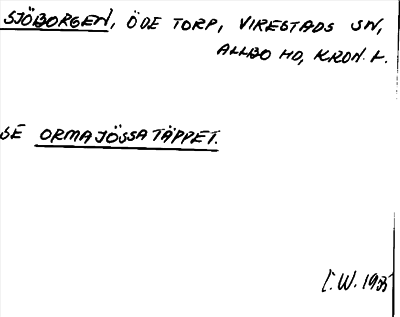 SJÖBORGEN, ÖDE TORP, VIRESTADS SN,
ALLBO HD, KRON. L.
SE ORMAJÖSSATÄPPET.
I.W. 1935